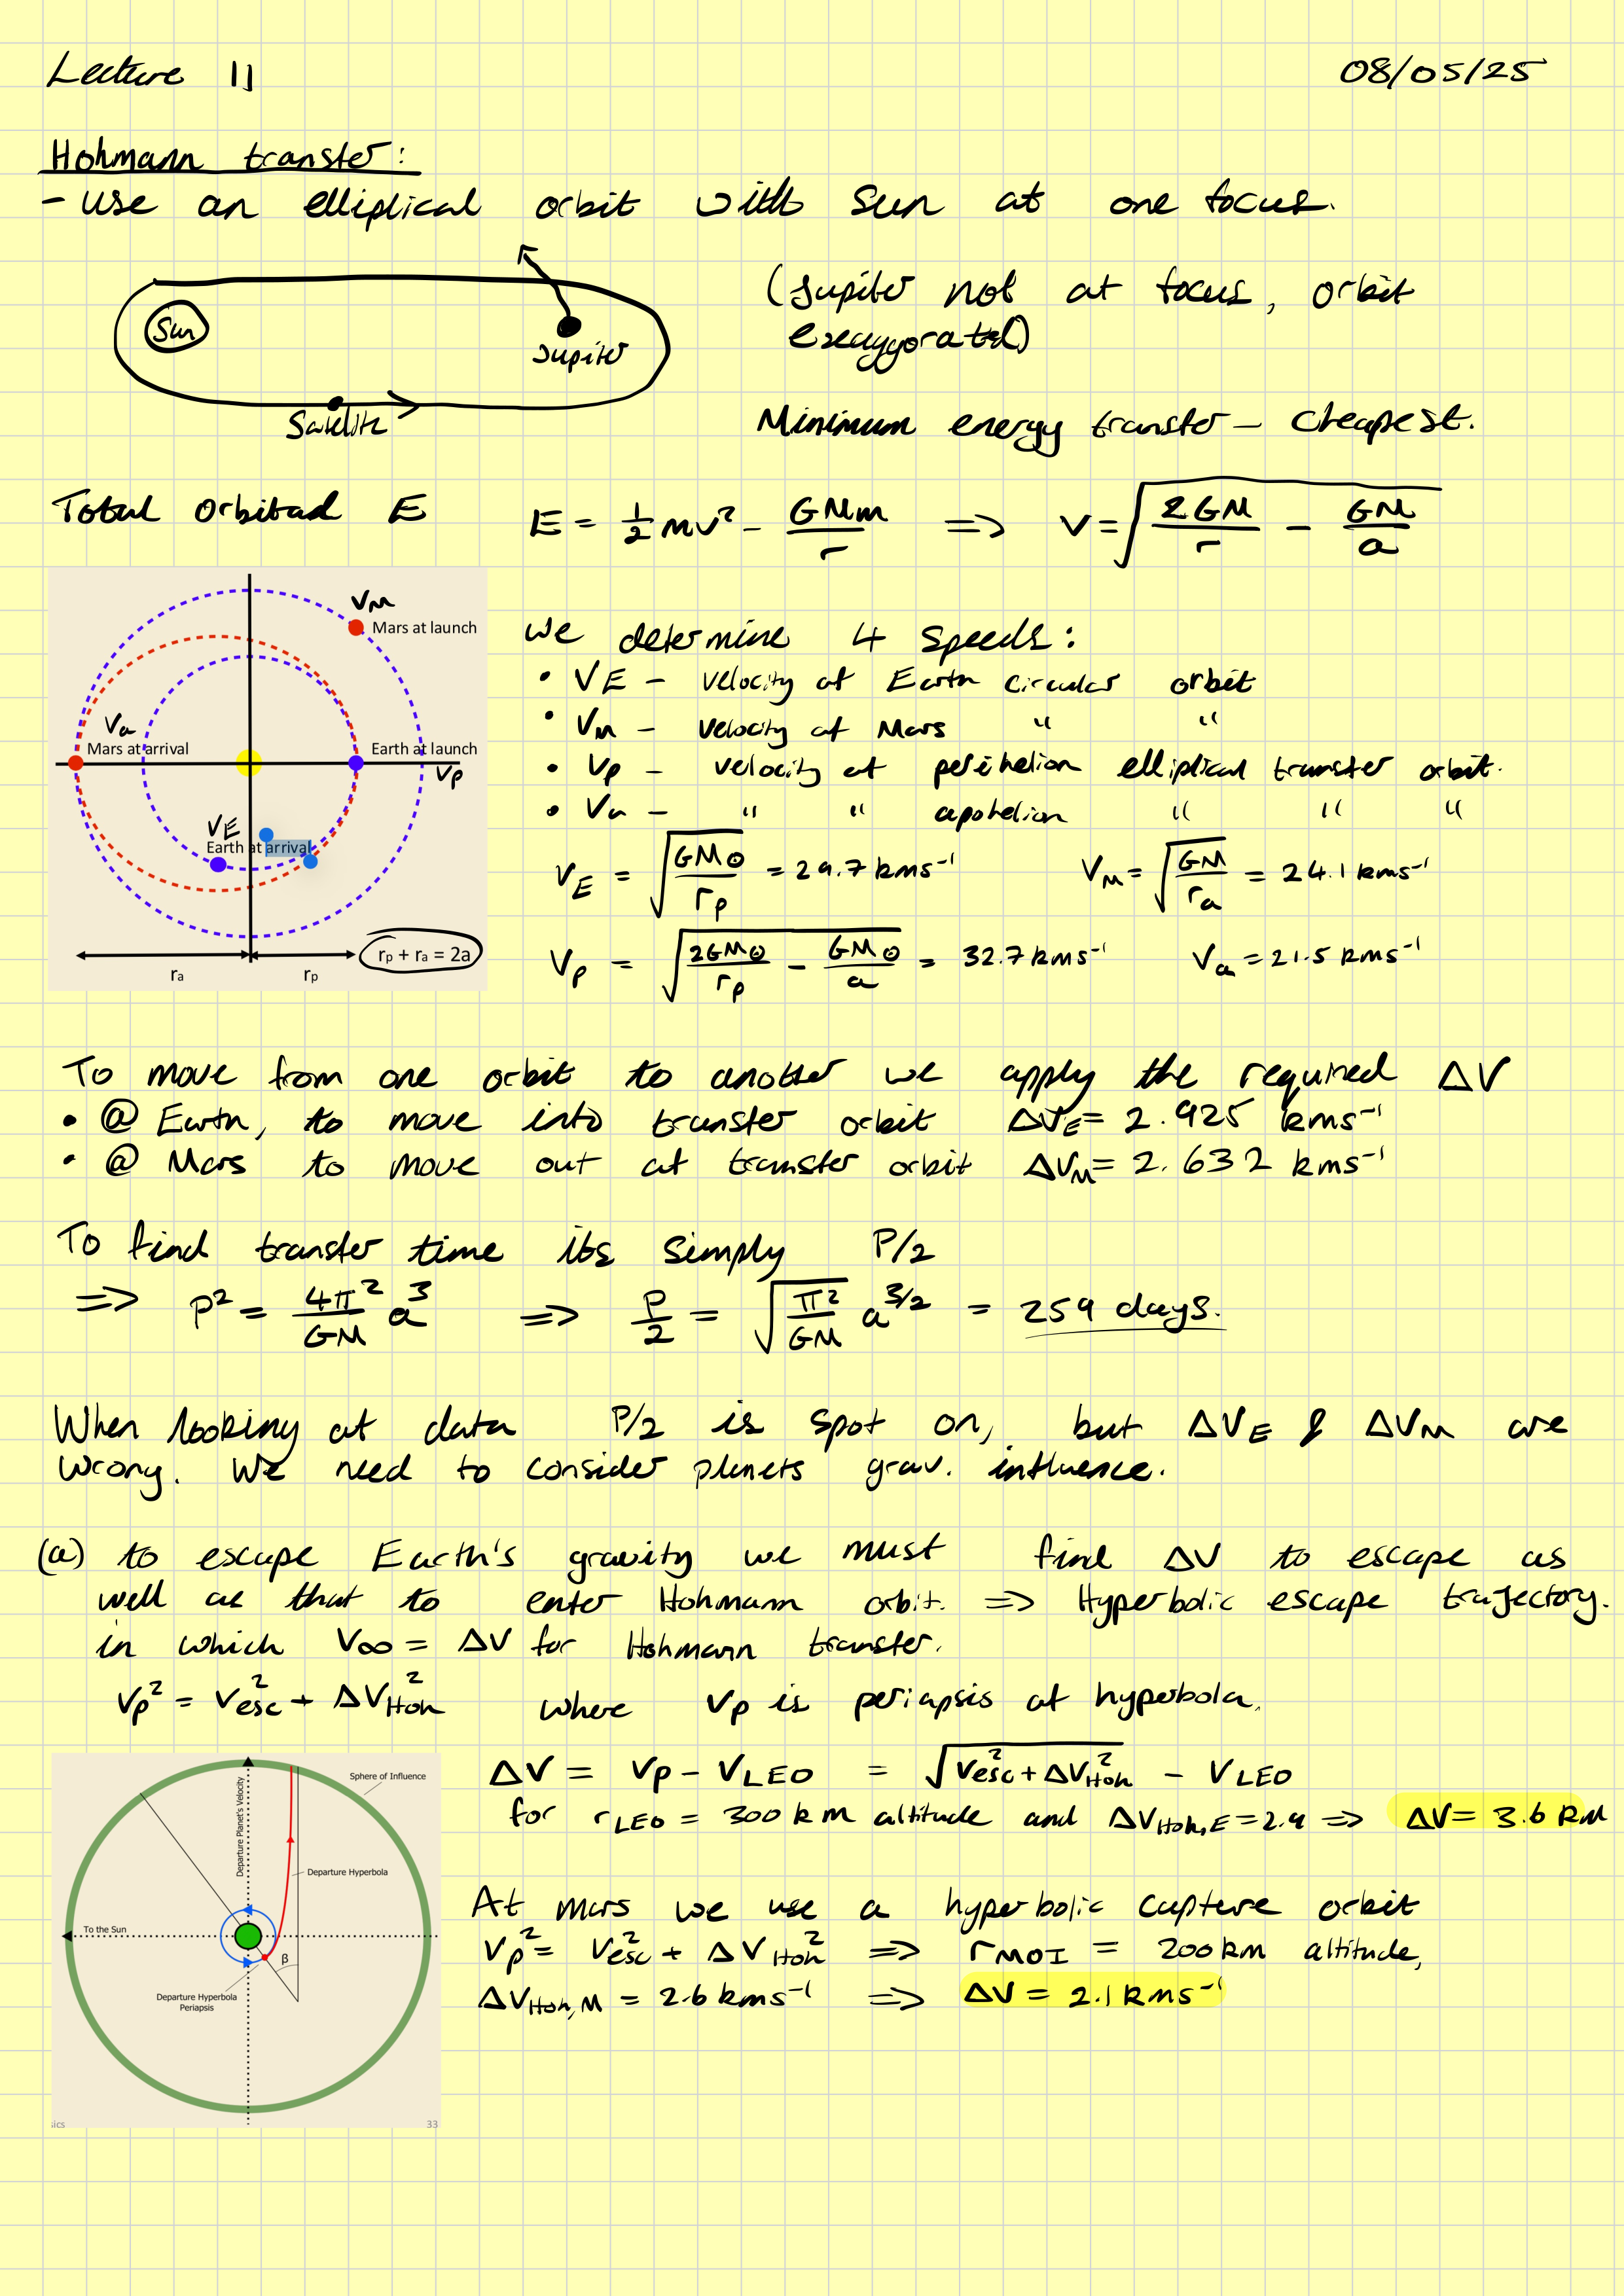 Lecture 11
08/05/25
Hohmann transfer:
- use an elliptical orbit with Sun at one focus.
Sun
Jupiter
Satellite
(Jupiter not at focus, orbit
exaggorated)
Minimum energy transfer — cheapest.
Total orbital E
E = ½mv² - GMm/r => v = √(2GM/r - GM/a)
VM
Mars at launch
Va
Mars at arrival
Earth at launch
Vp
VE
Earth at arrival
rp + ra = 2a
ra
rp
We determine 4 speeds:
• VE - velocity of Earth circular orbit
• VM - velocity of Mars " "
• Vp - velocity at perihelion elliptical transfer orbit.
• Va - " " apohelion " " "
VE = √(GM⊙/rp) = 29.7 kms⁻¹
VM = √(GM/ra) = 24.1 kms⁻¹
Vp = √(2GM⊙/rp - GM⊙/a) = 32.7 kms⁻¹
Va = 21.5 kms⁻¹
To move from one orbit to another we apply the required ΔV
• @ Earth, to move into transfer orbit ΔVE = 2.925 kms⁻¹
• @ Mars to move out of transfer orbit ΔVM = 2.632 kms⁻¹
To find transfer time its simply P/2
=> P² = 4π²/GM a³ => P/2 = √(π²/GM) a^3/2 = 259 days.
When looking at data P/2 is spot on, but ΔVE & ΔVM are
wrong. We need to consider planets grav. influence.
(a) to escape Earth's gravity we must find ΔV to escape as
well as that to enter Hohmann orbit. => Hyperbolic escape trajectory.
in which V∞ = ΔV for Hohmann transfer.
Vp² = Vesc² + ΔVHoh² where Vp is periapsis of hyperbola.
ΔV = Vp - VLEO = √(Vesc² + ΔVHoh²) - VLEO
for rLEO = 300 km altitude and ΔVHoh,E = 2.9 => ΔV = 3.6 km
Sphere of Influence
Departure Planet's Velocity
Departure Hyperbola
To the Sun
β
Departure Hyperbola
Periapsis
ics
33
At mars we use a hyperbolic capture orbit
Vp² = Vesc² + ΔVHoh² => rMOI = 200km altitude,
ΔVHoh,M = 2.6 kms⁻¹ => ΔV = 2.1 kms⁻¹